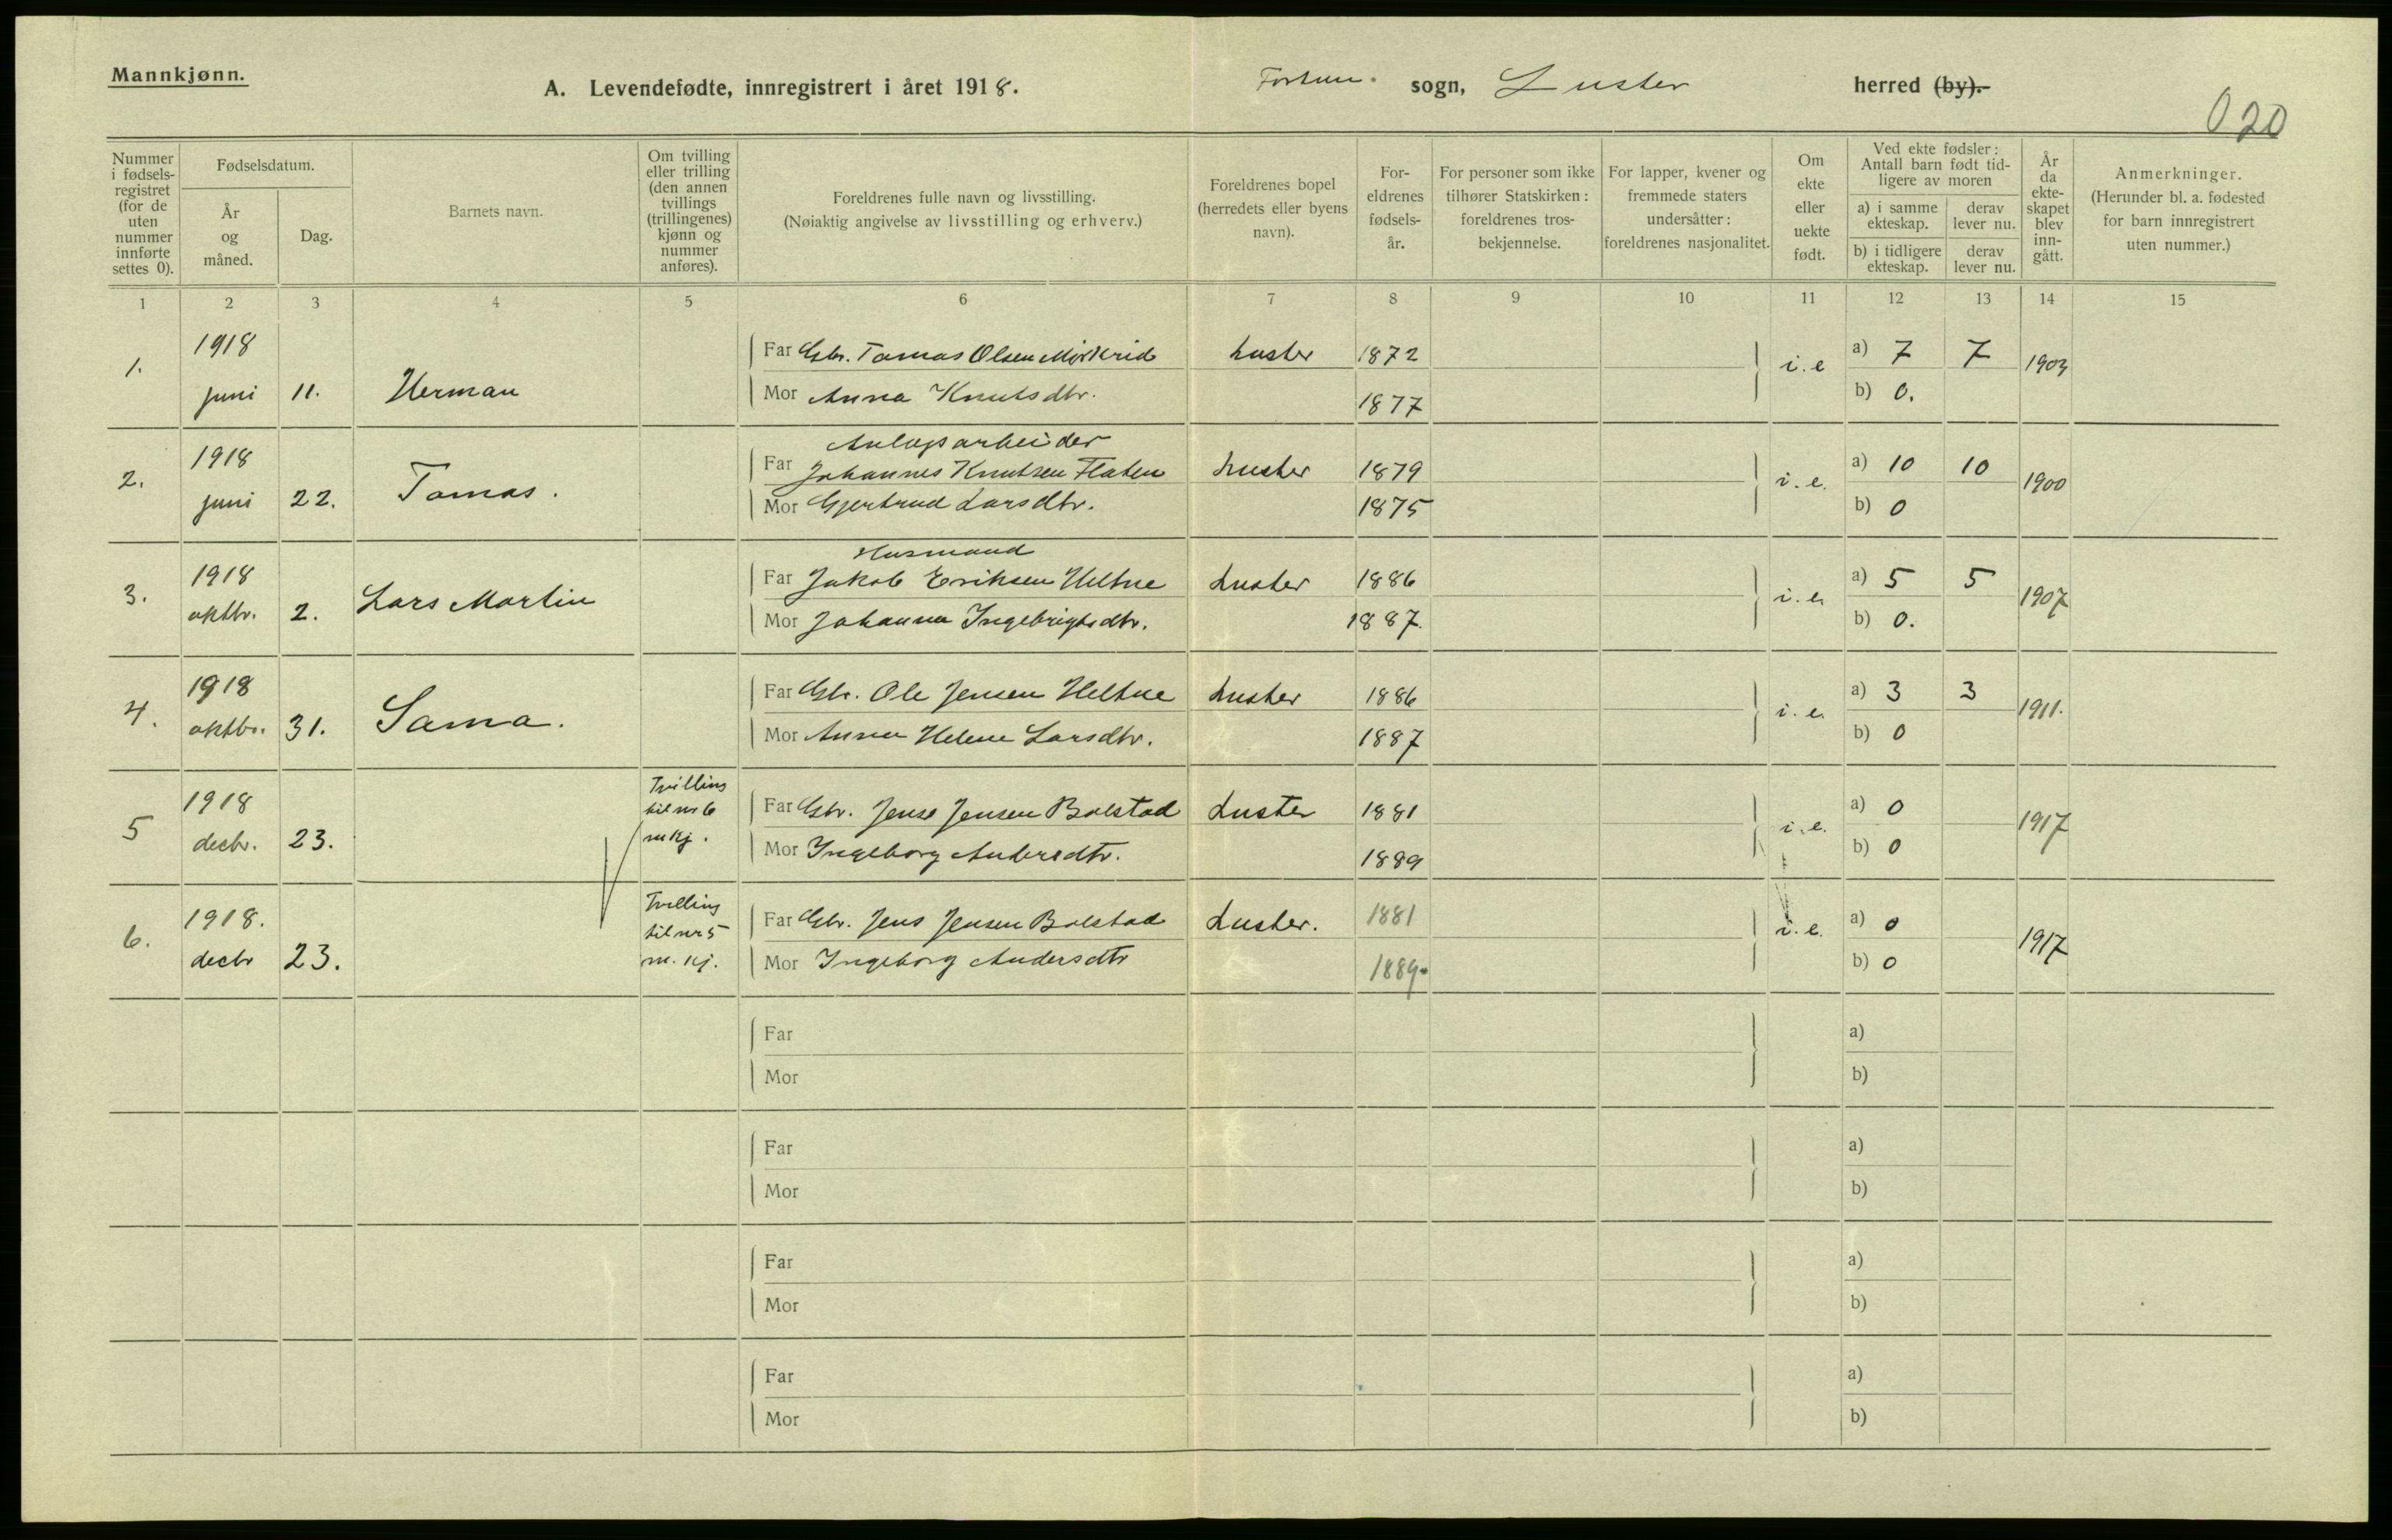 Mannkjønn.
A. Levendefødte, innregistrert i året 1918.
Fortun. sogn, Luster herred (by).
020
Nummer i fødsels-registret (for de uten nummer innførte settes 0).
Fødselsdatum.
År og måned.
Dag.
Barnets navn.
Om tvilling eller trilling (den annen tvillings (trillingenes) kjønn og nummer anføres).
Foreldrenes fulle navn og livsstilling.
(Nøiaktig angivelse av livsstilling og erhverv.)
Foreldrenes bopel (herredets eller byens navn).
For-eldrenes fødsels-år.
For personer som ikke tilhører Statskirken: foreldrenes tros-bekjennelse.
For lapper, kvener og fremmede staters undersåtter: foreldrenes nasjonalitet.
Om ekte eller uekte født.
Ved ekte fødsler: Antall barn født tid-ligere av moren
a) i samme ekteskap.
derav lever nu.
b) i tidligere ekteskap.
derav lever nu.
År da ekte-skapet blev inn-gått.
Anmerkninger.
(Herunder bl. a. fødested for barn innregistrert uten nummer.)
1 2 3 4 5 6 7 8 9 10 11 12 13 14 15
1. 1918 juni 11. Herman
Far Gbr. Tomas Olsen Mørkrid Luster 1872 i.e a) 7 7 1903
Mor Anna Knutsdtr. 1877 b) 0.
2. 1918 juni 22. Tomas.
Anlægsarbeider
Far Johannes Knutsen Flaten Luster 1879 i.e. a) 10 10 1900
Mor Gjertrud Larsdtr. 1875 b) 0
3. 1918 oktbr. 2. Lars Martin
Husmand
Far Jakob Eriksen Heltne Luster 1886 i.e. a) 5 5 1907
Mor Johanna Ingebrigtsdtr. 1887. b) 0.
4. 1918 oktbr. 31. Sama.
Far Gbr. Ole Jensen Heltne Luster 1886 i.e. a) 3 3 1911.
Mor Anna Helene Larsdtr. 1887 b) 0
5 1918 decbr. 23.
Tvilling til nr 6 m kj.
Far Gbr. Jens Jensen Bolstad Luster 1881 i.e. a) 0 1917
Mor Ingeborg Andersdtr. 1889 b) 0
6. 1918. decbr 23.
Tvilling til nr 5 m. kj.
Far Gbr. Jens Jensen Bolstad Luster. 1881 i.e. a) 0 1917
Mor Ingeborg Andersdtr 1889 b) 0
Far a)
Mor b)
Far a)
Mor b)
Far a)
Mor b)
Far a)
Mor b)